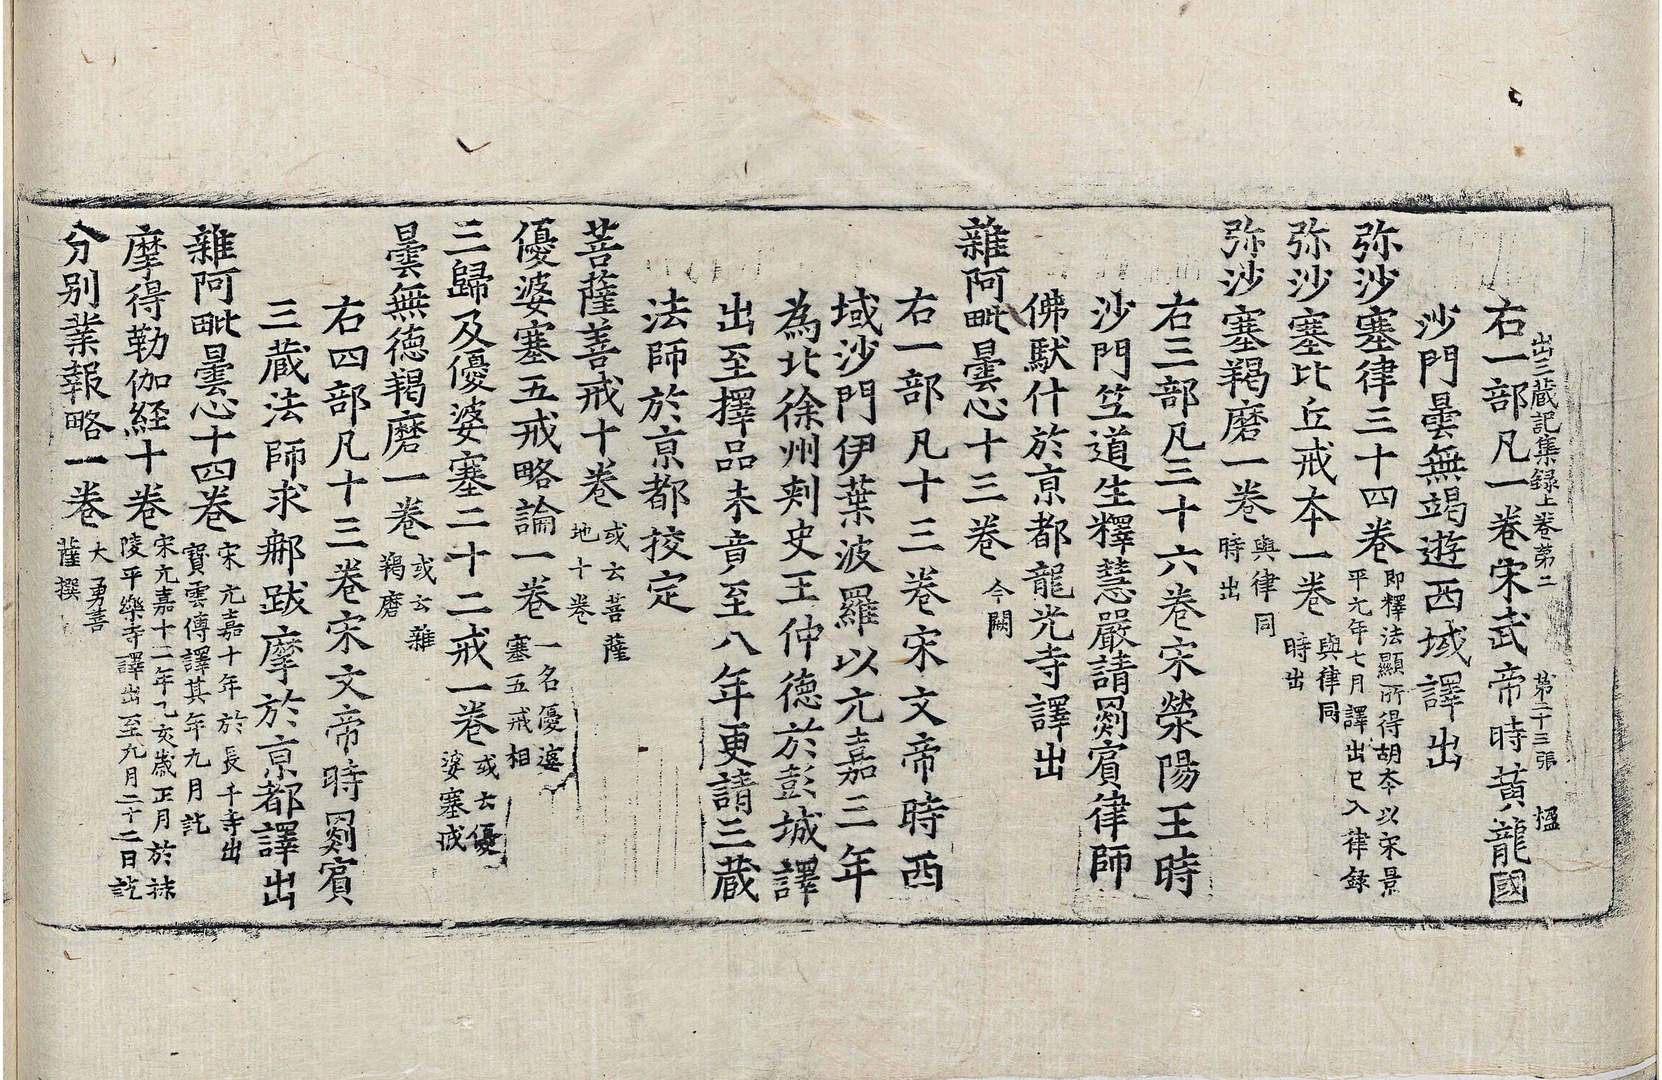 出三藏記集録上卷第二 第二十三張 楹
右一部凡一卷宋武帝時黃龍國
沙門曇無竭遊西域譯出
弥沙塞律三十四卷 即釋法顯所得胡本以宋景
平元年七月譯出已入律録
弥沙塞比丘戒本一卷 與律同
時出
弥沙塞羯磨一卷 與律同
時出
右三部凡三十六卷宋滎陽王時
沙門竺道生釋慧嚴請罽賓律師
佛馱什於京都龍光寺譯出
雜阿毗曇心十三卷 今闕
右一部凡十三卷宋文帝時西
域沙門伊葉波羅以元嘉三年
為北徐州刺史王仲德於彭城譯
出至擇品未竟至八年更請三藏
法師於京都挍定
菩薩善戒十卷 或云菩薩
地十卷
優婆塞五戒略論一卷 一名優婆
塞五戒相
三歸及優婆塞二十二戒一卷 或云優
婆塞戒
曇無德羯磨一卷 或云雜
羯磨
右四部凡十三卷宋文帝時罽賓
三藏法師求那跋摩於京都譯出
雜阿毗曇心十四卷 宋元嘉十年於長干寺出
寶雲傳譯其年九月訖
摩得勒伽經十卷 宋元嘉十二年乙亥歲正月於秣
陵平樂寺譯出至九月二十二日訖
分別業報略一卷 大勇菩
薩撰